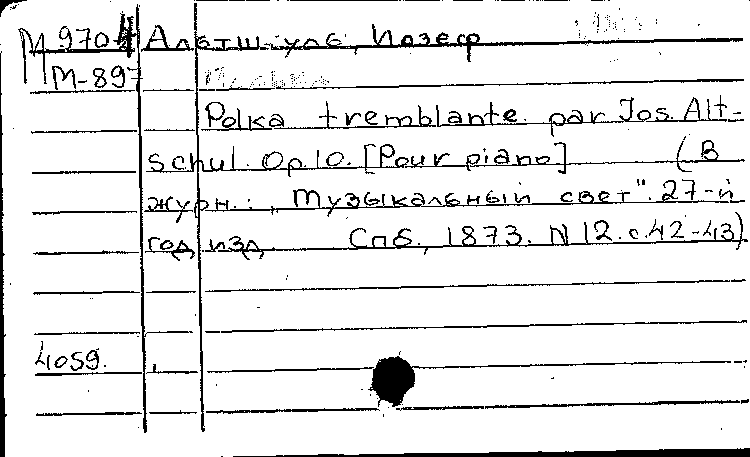 М 970-4 Альтшуль, Иозеф
М-897 Полька
Polka tremblante. par Jos. Alt-
schul. Op. 10. [Pour piano] (В
журн.: „Музыкальный свет". 27-й
год изд. Спб., 1873. N 12. с. 42-43).
4059.